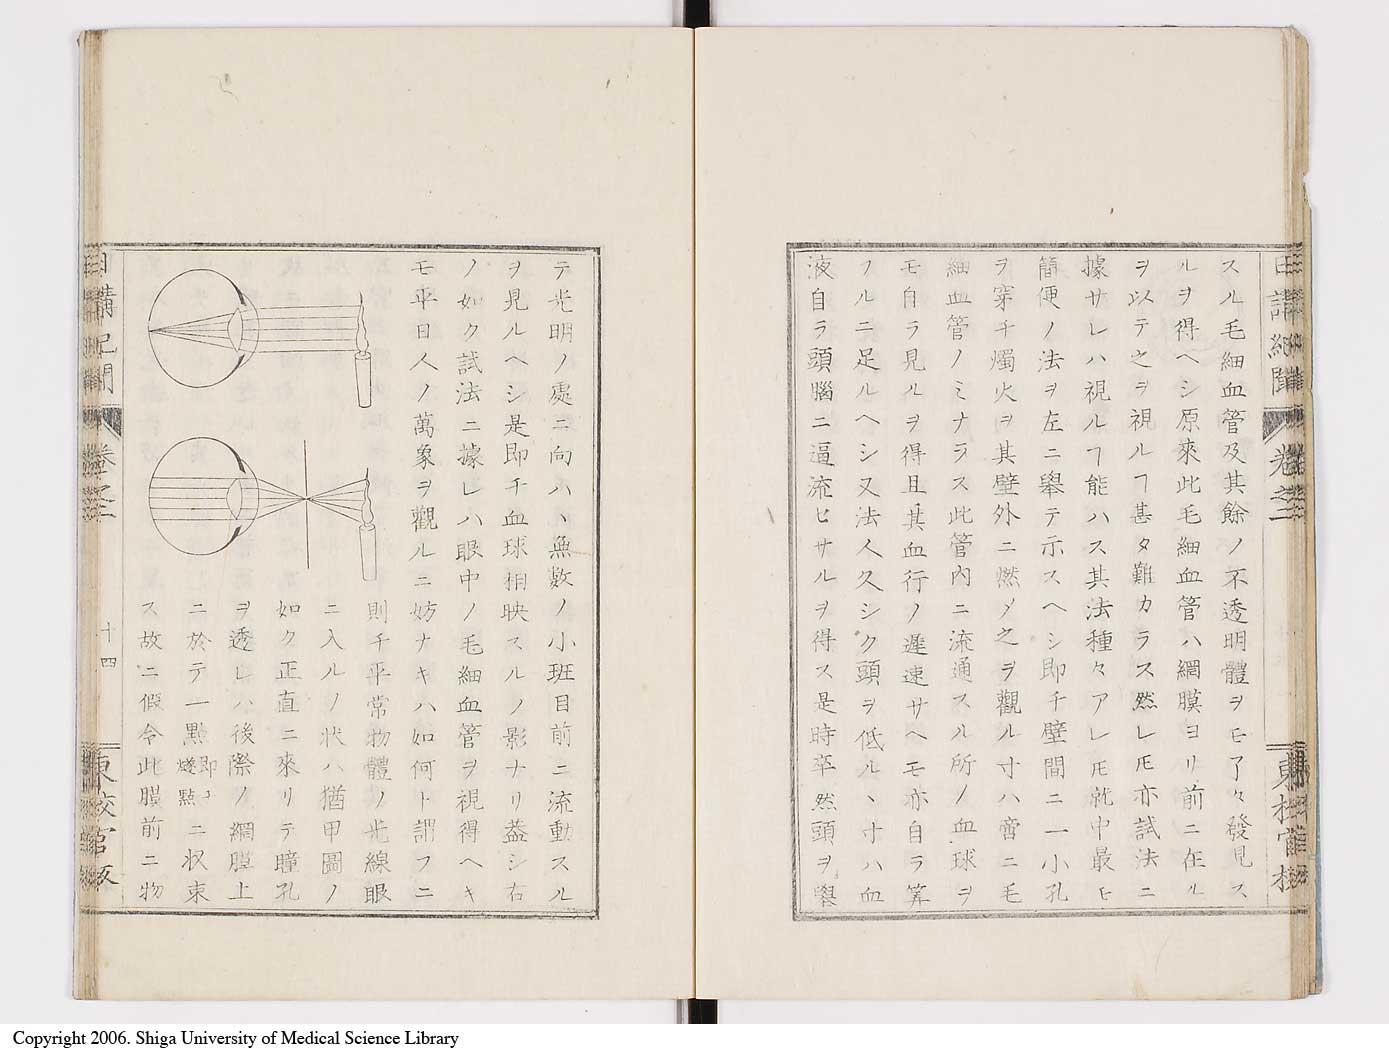 スル毛細血管及其餘ノ不透明體ヲモ了々發見ス
ルヲ得ヘシ原來此毛細血管ハ網膜ヨリ前ニ在ル
ヲ以テ之ヲ視ルヿ甚タ難カラス然レ𪜈亦試法ニ
據サレハ視ルヿ能ハス其法種々アレ𪜈就中最ヒ
簡便ノ法ヲ左ニ舉テ示スヘシ即チ壁間ニ一小孔
ヲ穿チ燭火ヲ其壁外ニ燃メ之ヲ觀ル寸ハ啻ニ毛
細血管ノミナラス此管內ニ流通スル所ノ血球ヲ
モ自ラ見ルヲ得且其血行ノ遲速サヘモ亦自ラ筭
フルニ足ルヘシ又法人久シク頭ヲ低ルヽ寸ハ血
液自ラ頭腦ニ逼流セサルヲ得ス是時卒然頭ヲ舉
テ光明ノ處ニ向ハヽ無數ノ小班目前ニ流動スル
ヲ見ルヘシ是即チ血球相映スルノ影ナリ葢シ右
ノ如ク試法ニ據レハ眼中ノ毛細血管ヲ視得ヘキ
モ平日人ノ萬象ヲ觀ルニ妨ナキハ如何ト謂フニ
則チ平常物體ノ光線眼
ニ入ルノ狀ハ猶甲圖ノ
如ク正直ニ來リテ瞳孔
ヲ透レハ後際ノ網膜上
ニ於テ一點即チ燧點ニ収束
ス故ニ假令此膜前ニ物
日講記聞
卷之二
十四
東校官板
Copyright 2006. Shiga University of Medical Science Library